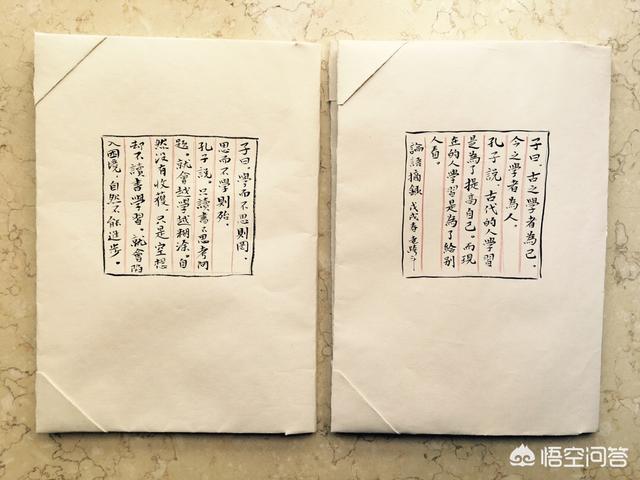 子曰、古之學者為己、
今之學者為人。
孔子說、古代的人學習
是為了提高自己。而現
在的人學習是為了給別
人看。
論語摘錄 戊戌春
子曰、學而不思則罔、
思而不學則殆。
孔子說、只讀書不思考問
題、就會越學越糊涂、自
然沒有收獲、只是空想
却不讀書學習、就會陷
入困境、自然不能進步。
悟空问答